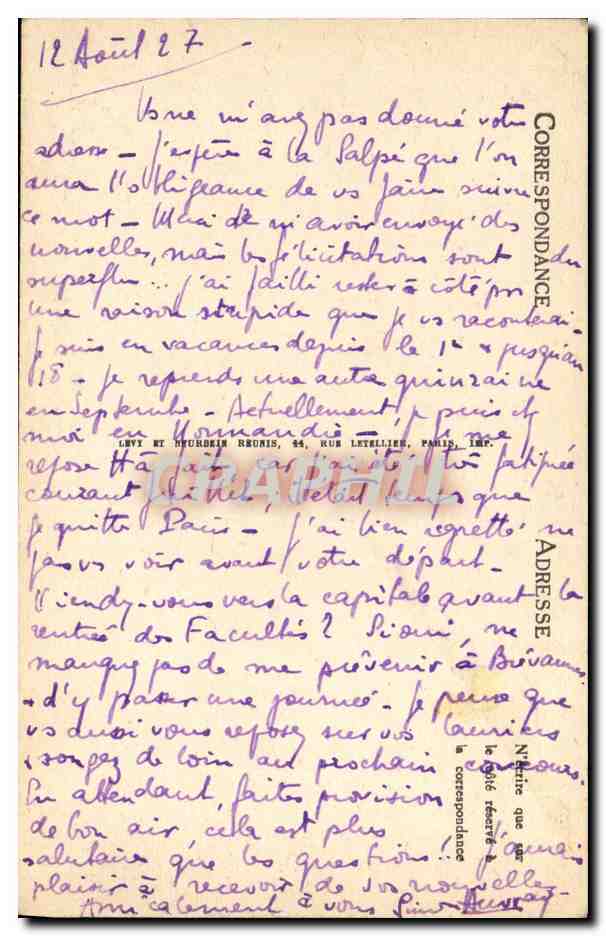 12 Août 27
Vs ne m'avez pas donné votre
adresse - J'espère à la Salpé que l'on
aura l'obligeance de vs faire suivre
ce mot - Merci de m'avoir envoyé des
nouvelles, mais les félicitations sont du
superflu... j'ai failli rester à côté pr
une raison stupide que je vs raconterai -
Je suis en vacances depuis le 1er jusqu'au
18 - Je reprends une autre quinzaine
en Septembre - Actuellement je suis chez
moi en Normandie - Je me
repose car j'ai été très fatiguée
courant Juillet, il était temps que
je quitte Paris - J'ai bien regretté ne
pas vs voir avant votre départ -
Viendrez-vous vers la capitale avant la
rentrée des Facultés? Si oui, ne
manquez pas de me prévenir à Brévannes
+ d'y passer une journée - Je pense que
vs aussi vous reposez sur vos lauriers
+ songez de loin au prochain concours.
En attendant, faites provision
de bon air, cela est plus
salutaire que les questions!! J'aurais
plaisir à recevoir de vos nouvelles -
Amicalement à vous
CORRESPONDANCE
ADRESSE
N'écrire que sur
le côté réservé à
la correspondance
LEVY ET NEURDEIN REUNIS, 44, RUE LETELLIER, PARIS, IMP.
CRAPHIL